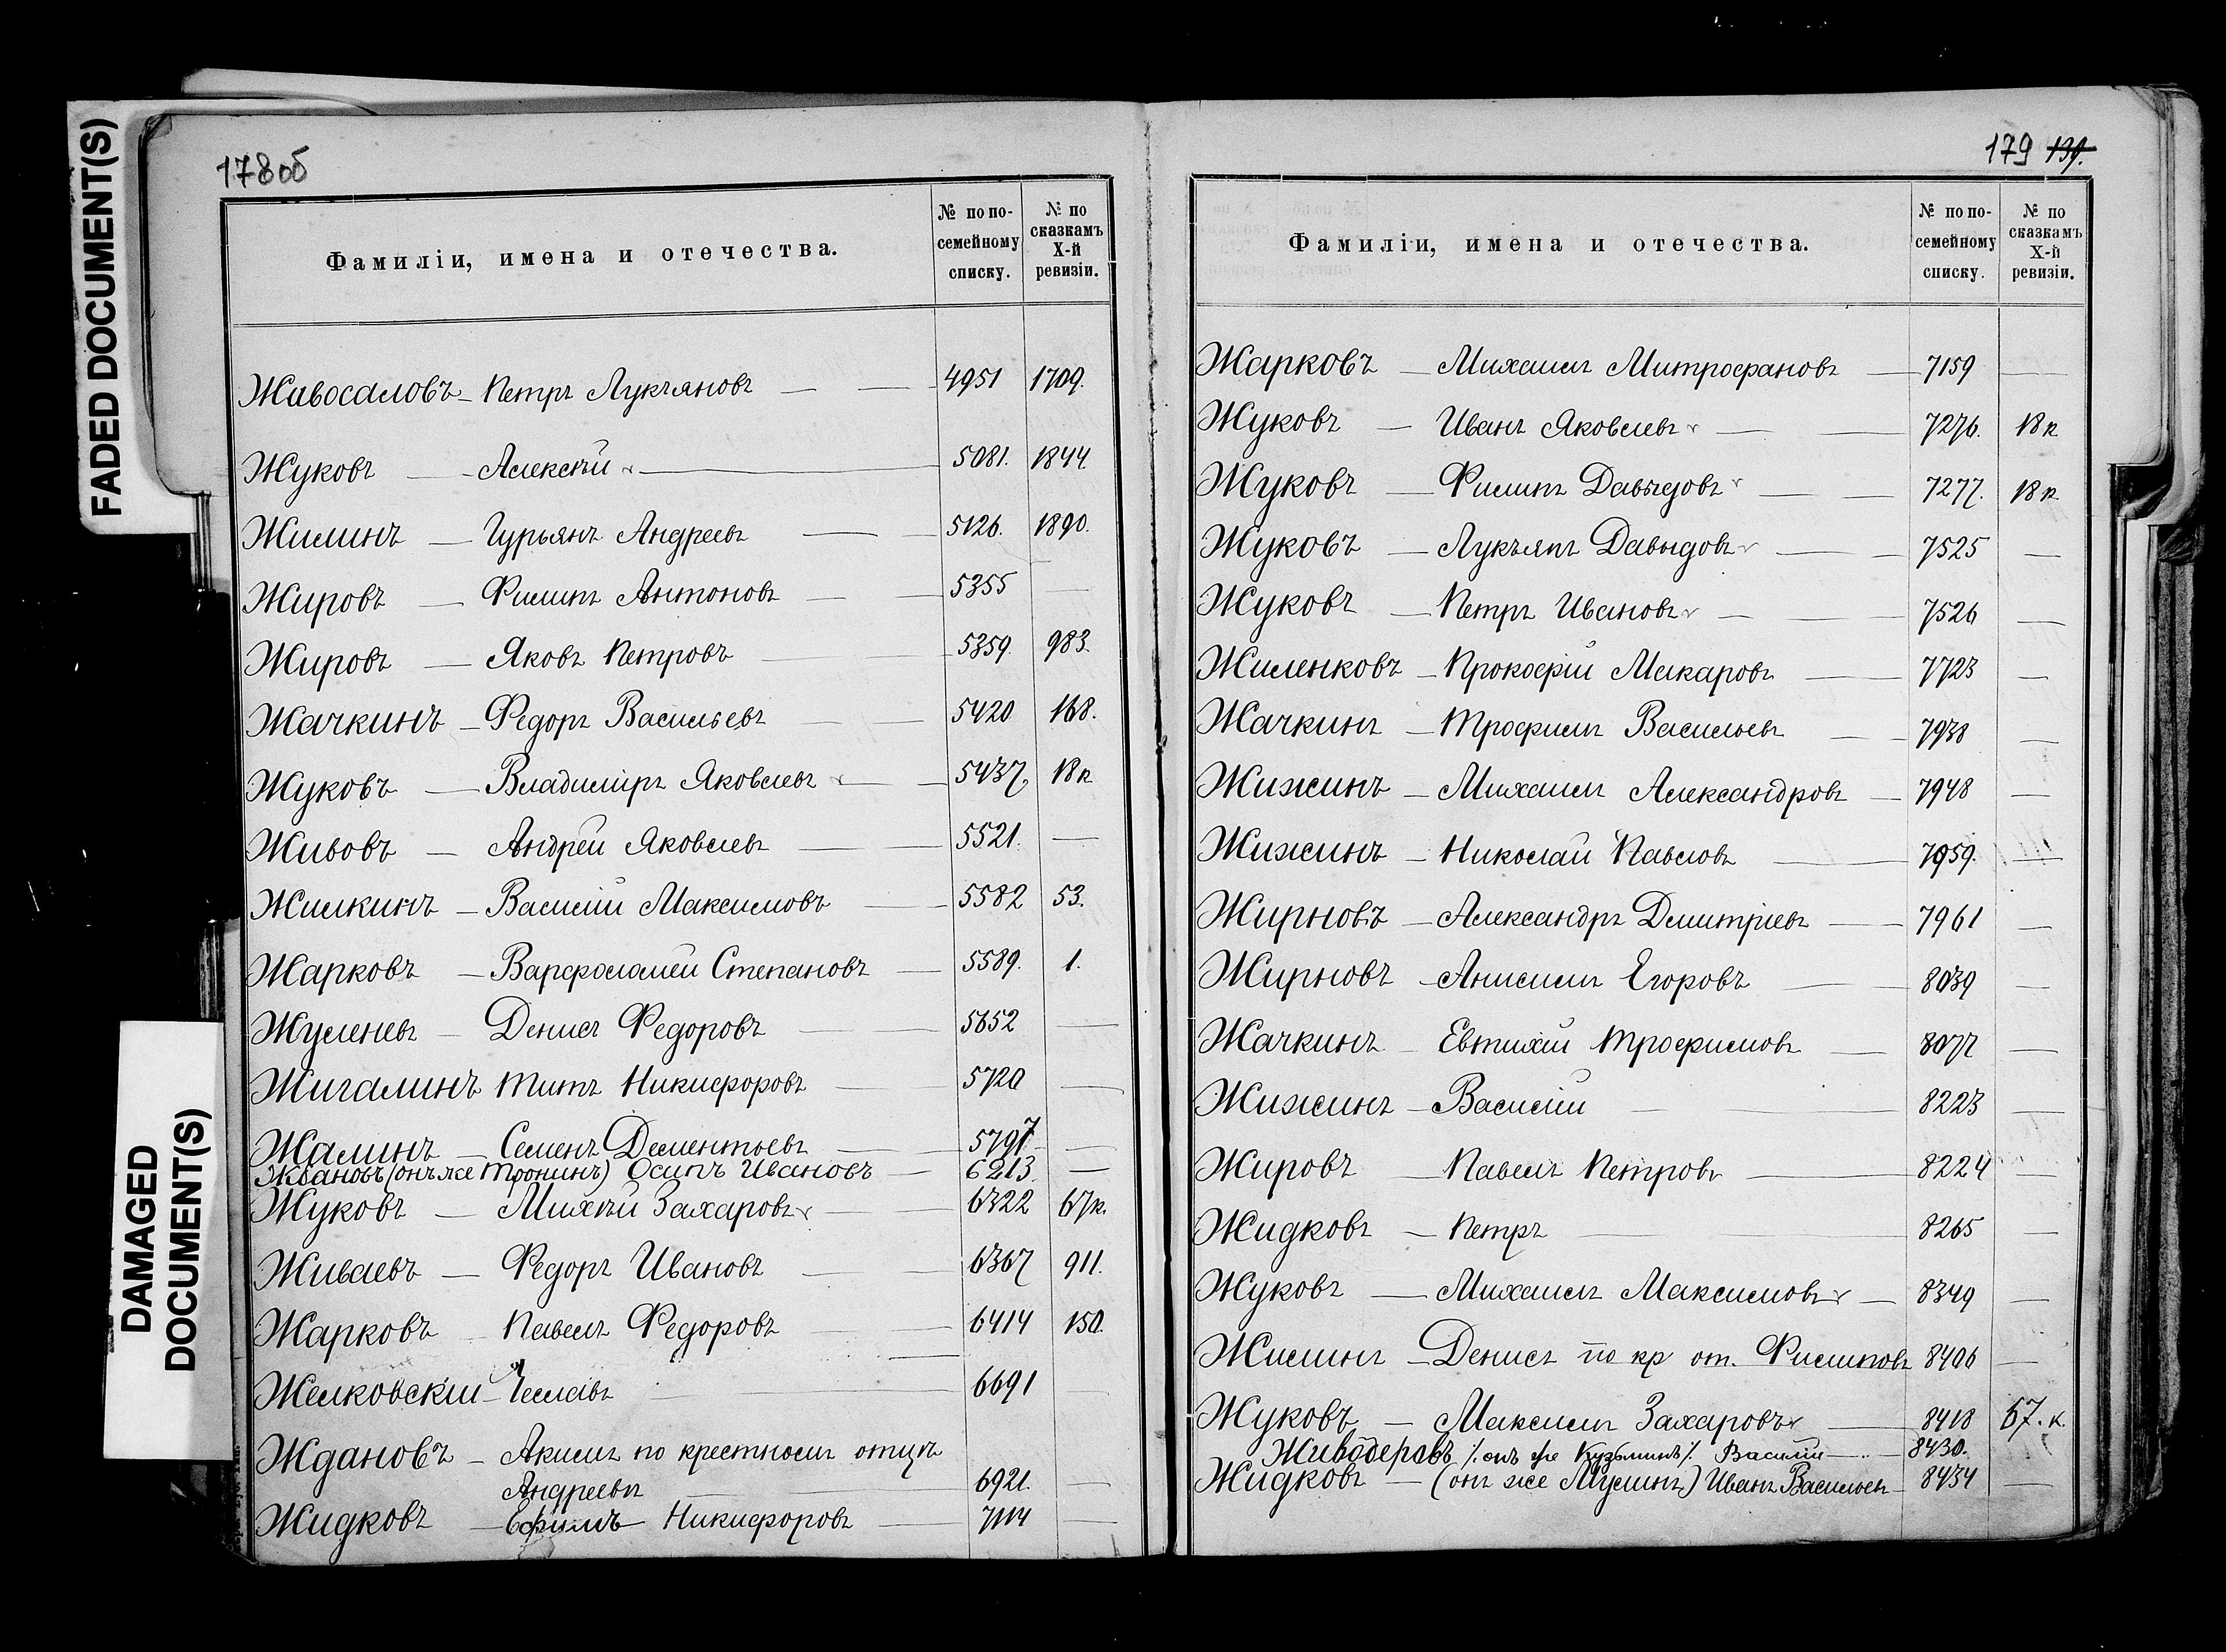 FADED DOCUMENT(S)
DAMAGED
DOCUMENT(S)
178об
Фамиліи, имена и отечества.
№ по по-
семейному
списку.
№ по
сказкамъ
X-й
ревизіи.
Живосаловъ - Петръ Лукъяновъ — — 4951 1709.
Жуковъ — Алексѣй — 5081. 1844.
Жилинъ — Гурьянъ Андреевъ — 5126. 1890.
Жировъ — Филипъ Антоновъ — 5355 —
Жировъ — Яковъ Петровъ — 5359. 983.
Жачкинъ — Федоръ Васильевъ — 5420 168.
Жуковъ — Владиміръ Яковлевъ — 5437. 18к
Живовъ — Андрей Яковлевъ — 5521. —
Жилкинъ — Василій Максимовъ — 5582 53.
Жарковъ — Варфоломей Степановъ — 5589. 1.
Жуленевъ — Денисъ Федоровъ — 5652 —
Жигалинъ Титъ Никифоровъ — 5720 —
Жалинъ — Семенъ Дементьевъ — 5797 —
Ждановъ (онъ же Тронинъ) Осипъ Ивановъ — 6213. —
Жуковъ — Михѣй Захаровъ — 6322 67к.
Живаевъ — Федоръ Ивановъ — 6367 911.
Жарковъ — Павелъ Федоровъ — 6414 150.
Желковскій - Чеславъ — 6691
Ждановъ - Акимъ по крестному отцу
Андреевъ — 6921. —
Жидковъ — Ефимъ Никифоровъ — 7114 —
179 139.
Фамиліи, имена и отечества.
№ по по-
семейному
списку.
№ по
сказкамъ
X-й
ревизіи.
Жарковъ — Михаилъ Митрофановъ — 7159 —
Жуковъ — Иванъ Яковлевъ — 7276. 18к
Жуковъ — Филипъ Давыдовъ — 7277. 18к
Жуковъ — Лукъянъ Давыдовъ — 7525 —
Жуковъ — Петръ Ивановъ — 7526 —
Жиленковъ — Прокофій Макаровъ — 7723 —
Жачкинъ — Трофимъ Васильевъ — 7938 —
Жижинъ — Михаилъ Александровъ — 7948 —
Жижинъ — Николай Павловъ — 7959. —
Жирновъ — Александръ Дмитріевъ — 7961 —
Жирновъ — Анисимъ Егоровъ — 8039 —
Жачкинъ — Евтихій Трофимовъ — 8077 —
Жижинъ — Василій — 8223 —
Жировъ — Павелъ Петровъ — 8224 —
Жидковъ — Петръ — 8265 —
Жуковъ — Михаилъ Максимовъ — 8349 —
Жилинъ — Денисъ по кр от. Филиповъ 8406 —
Жуковъ — Максимъ Захаровъ — 8418 67. к.
Живодеровъ /. онъ же Кузьминъ /. Василій — 8430.
Жидковъ — (онъ же Мулинъ) Иванъ Васильевъ — 8434 —